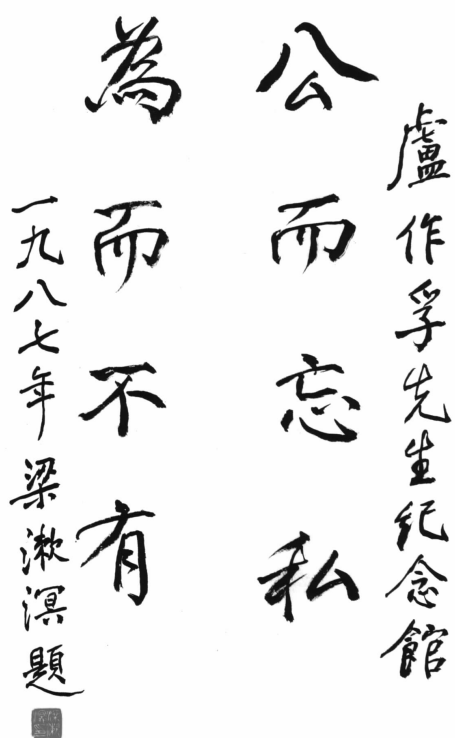 盧作孚先生紀念館
公而忘私
為而不有
一九八七年梁漱溟題